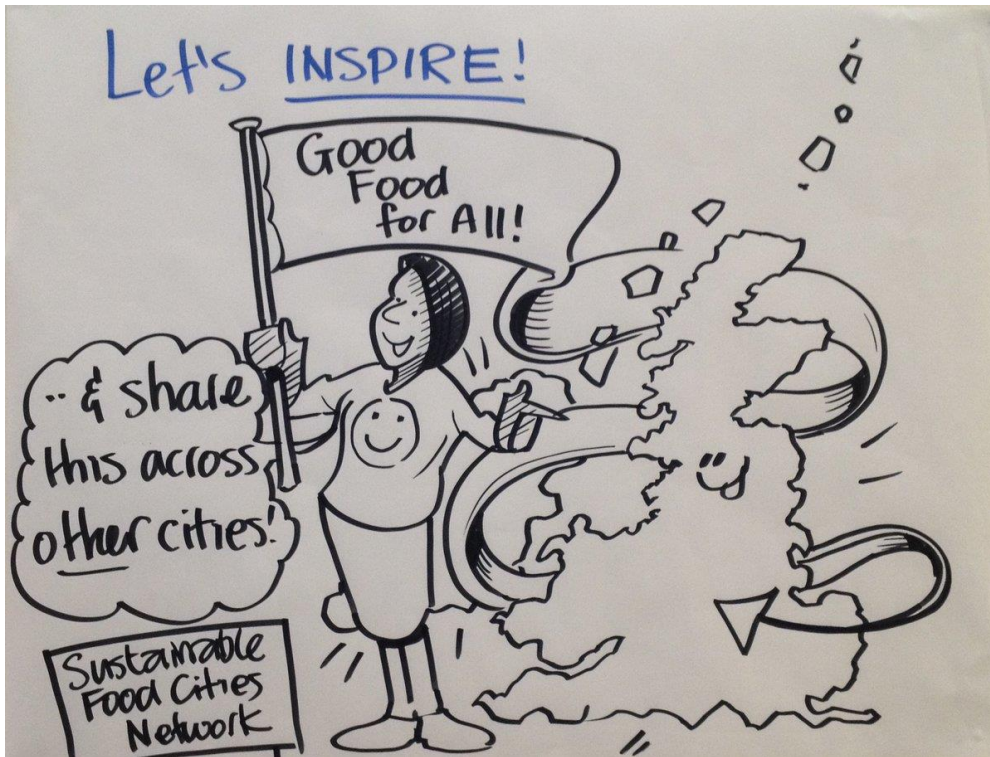 Let's INSPIRE!
Good
Food
for All!
.. & share
this across
other cities!
Sustainable
Food Cities
Network